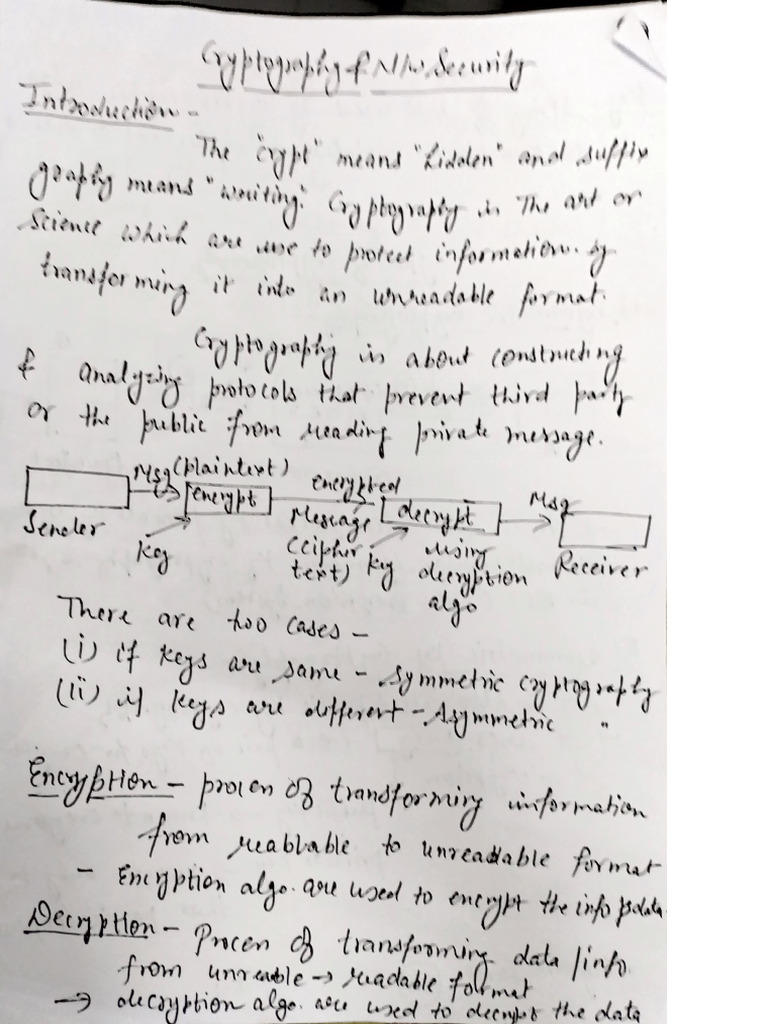 Cryptography & N/w Security
Introduction -
The "crypt" means "hidden" and suffix
graphy means "writing". Cryptography is The art or
Science which are use to protect information. by
transforming it into an unreadable format.
Cryptography is about constructing
& analyzing protocols that prevent third party
or the public from reading private message.
Msg (plaintext)
encrypt
encrypted
Message
(cipher
text)
decrypt
Msg
Sender
Key
Key
using
decryption
algo
Receiver
There are two cases -
(i) if keys are same - Symmetric cryptography
(ii) if keys are different - Asymmetric "
Encryption - process of transforming information
from reablable to unreadable format
- Encryption algo. are used to encrypt the info data
Decryption - Process of transforming data/info
from unreable → readable format
→ decryption algo. are used to decrypt the data